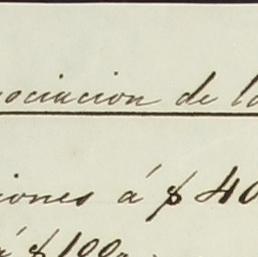 ociacion de la
iones á $ 40
á $ 100